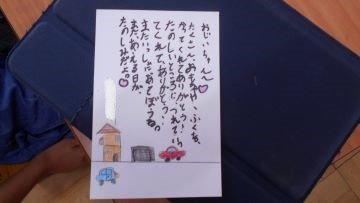 おじいちゃんへ
たくさん、おもちゃや、ふくを、
かってくれてありがとう!
たのしいところに、つれていっ
てくれて、ありがとう!
またいっしょにあそぼうね。
また、あえる日が、
たのしみだよ。